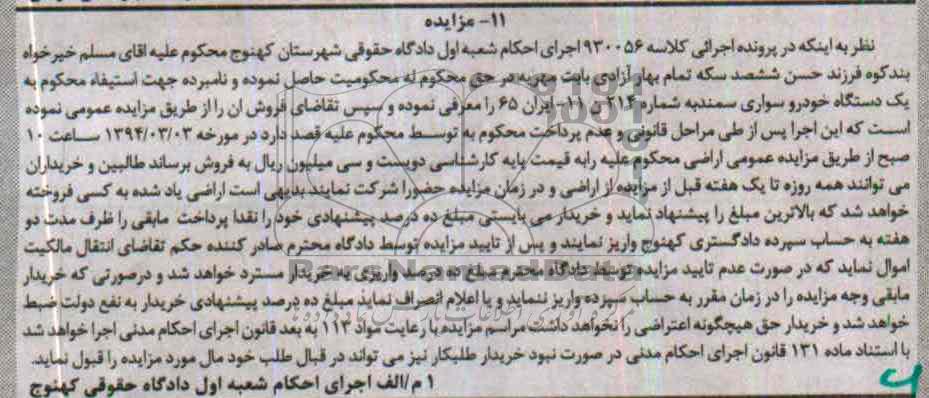 ۱۱- مزایده
نظر به اینکه در پرونده اجرائی کلاسه ۹۳۰۰۵۶ اجرای احکام شعبه اول دادگاه حقوقی شهرستان کهنوج محکوم علیه اقای مسلم خیرخواه
بندکوه فرزند حسن ششصد سکه تمام بهار آزادی بابت مهریه در حق محکوم له محکومیت حاصل نموده و نامبرده جهت استیفاء محکوم به
یک دستگاه خودرو سواری سمندبه شماره ۲۱۴ ن ۱۱- ایران ۶۵ را معرفی نموده و سپس تقاضای فروش ان را از طریق مزایده عمومی نموده
است که این اجرا پس از طی مراحل قانونی و عدم پرداخت محکوم به توسط محکوم علیه قصد دارد در مورخه ۱۳۹۴/۰۳/۰۳ ساعت ۱۰
صبح از طریق مزایده عمومی اراضی محکوم علیه رابه قیمت پایه کارشناسی دویست و سی میلیون ریال به فروش برساند طالبین و خریداران
می توانند همه روزه تا یک هفته قبل از مزایده از اراضی و در زمان مزایده حضورا شرکت نمایند بدیهی است اراضی یاد شده به کسی فروخته
خواهد شد که بالاترین مبلغ را پیشنهاد نماید و خریدار می بایستی مبلغ ده درصد پیشنهادی خود را نقدا پرداخت مابقی را ظرف مدت دو
هفته به حساب سپرده دادگستری کهنوج واریز نمایند و پس از تایید مزایده توسط دادگاه محترم صادر کننده حکم تقاضای انتقال مالکیت
اموال نماید که در صورت عدم تایید مزایده توسط دادگاه محترم مبلغ ده درصد واریزی به خریدار مسترد خواهد شد و درصورتی که خریدار
مابقی وجه مزایده را در زمان مقرر به حساب سپرده واریز ننماید و یا اعلام انصراف نماید مبلغ ده درصد پیشنهادی خریدار به نفع دولت ضبط
خواهد شد و خریدار حق هیچگونه اعتراضی را نخواهد داشت مراسم مزایده با رعایت مواد ۱۱۳ به بعد قانون اجرای احکام مدنی اجرا خواهد شد
با استناد ماده ۱۳۱ قانون اجرای احکام مدنی در صورت نبود خریدار طلبکار نیز می تواند در قبال طلب خود مال مورد مزایده را قبول نماید.
۱ م/الف اجرای احکام شعبه اول دادگاه حقوقی کهنوج